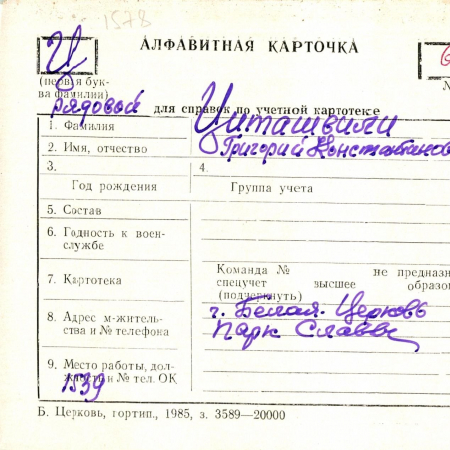 1578
Ц
АЛФАВИТНАЯ КАРТОЧКА
6
(первая бук-
ва фамилии)
№
рядовый
для справок по учетной картотеке
1. Фамилия Циташвили
2. Имя, отчество Григорий Константинов
3. 4.
Год рождения Группа учета
5. Состав
6. Годность к воен-
службе
7. Картотека
Команда № не предназн
спецучет высшее образо
(подчеркнуть)
8. Адрес м-житель-
ства и № телефона
г. Белая-Церковь
Парк Славы
9. Место работы, дол-
жность и № тел. ОК
1539
Б. Церковь, гортип., 1985, з. 3589—20000